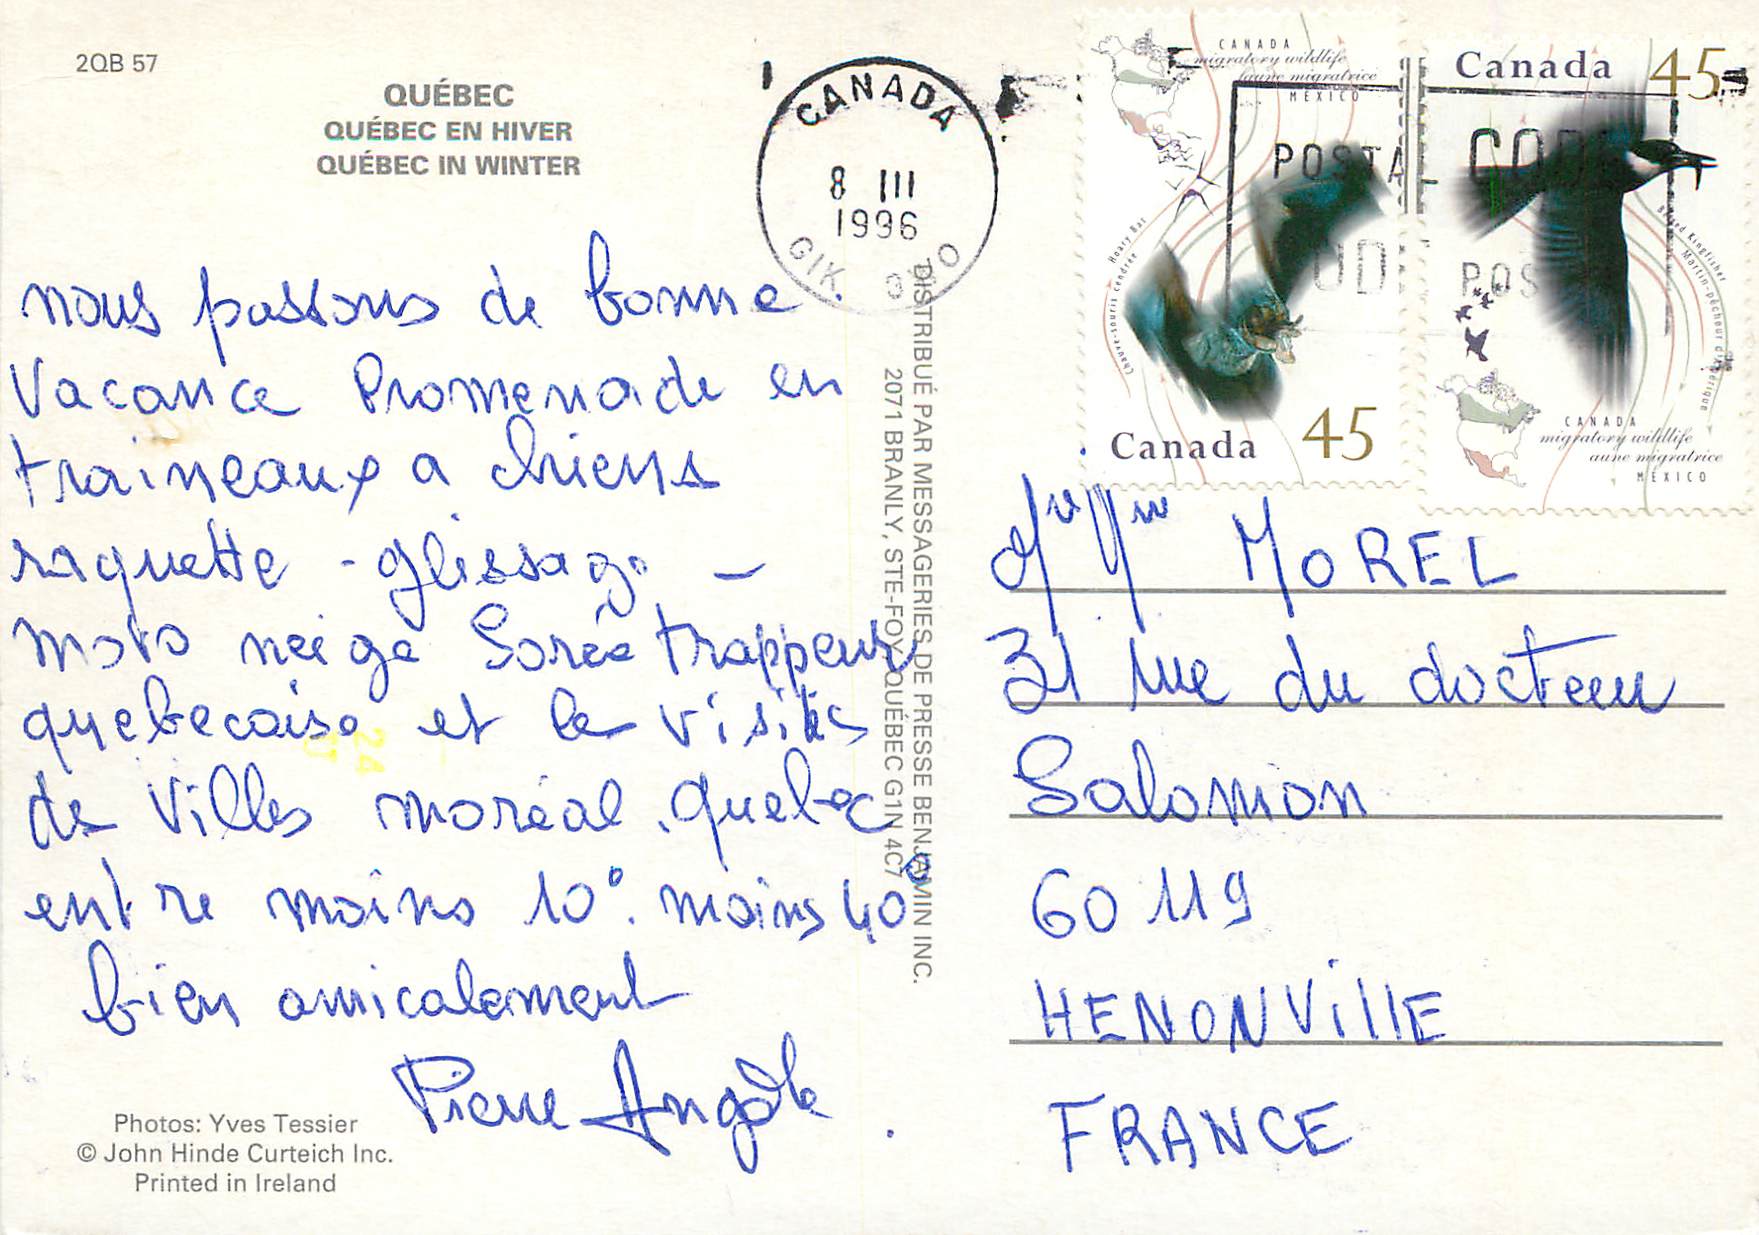 2QB 57
QUÉBEC
QUÉBEC EN HIVER
QUÉBEC IN WINTER
nous passons de bonne
Vacance Promenade en
traineaux a chiens
raquette - glissage -
moto neige Sorée trappeur
quebecoise et le visites
de Villes moréal. quebec
entre moins 10°. moins 40°
bien amicalement
Pierre Angèle
Photos: Yves Tessier
© John Hinde Curteich Inc.
Printed in Ireland
DISTRIBUÉ PAR MESSAGERIES DE PRESSE BENJAMIN INC.
2071 BRANLY, STE-FOY, QUÉBEC G1N 4C7
CANADA
8 III
1996
G1K
CANADA
migratory wildlife
faune migratrice
MEXICO
POSTAL
CODE
Hoary Bat
Chauve-souris cendrée
Canada 45
Canada 45
Belted Kingfisher
Martin-pêcheur d'Amérique
CANADA
migratory wildlife
aune migratrice
MEXICO
Mr Mme MOREL
31 rue du docteur
Salomon
60 119
HENONVillE
FRANCE